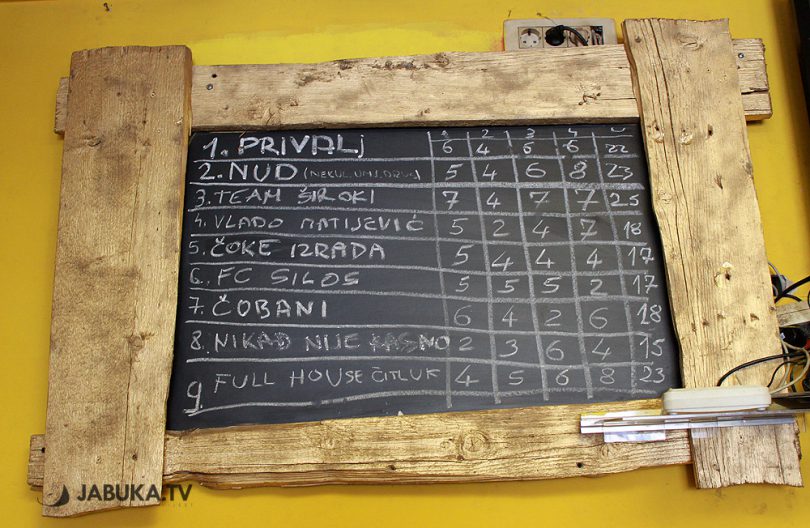 1 2 3 4
1. PRIVALj 6 4 6 6 22
2. NUD (NEKUL. UMJ. DRUŠ) 5 4 6 8 23
3. TEAM ŠIROKI 7 4 7 7 25
4. VLADO MATIJEVIĆ 5 2 4 7 18
5. ČOKE IZRADA 5 4 4 4 17
6. FC SILOS 5 5 5 2 17
7. ČOBANI 6 4 2 6 18
8. NIKAD NIJE KASNO 2 3 6 4 15
9 FULL HOUSE ČITLUK 4 5 6 8 23
JABUKA.TV